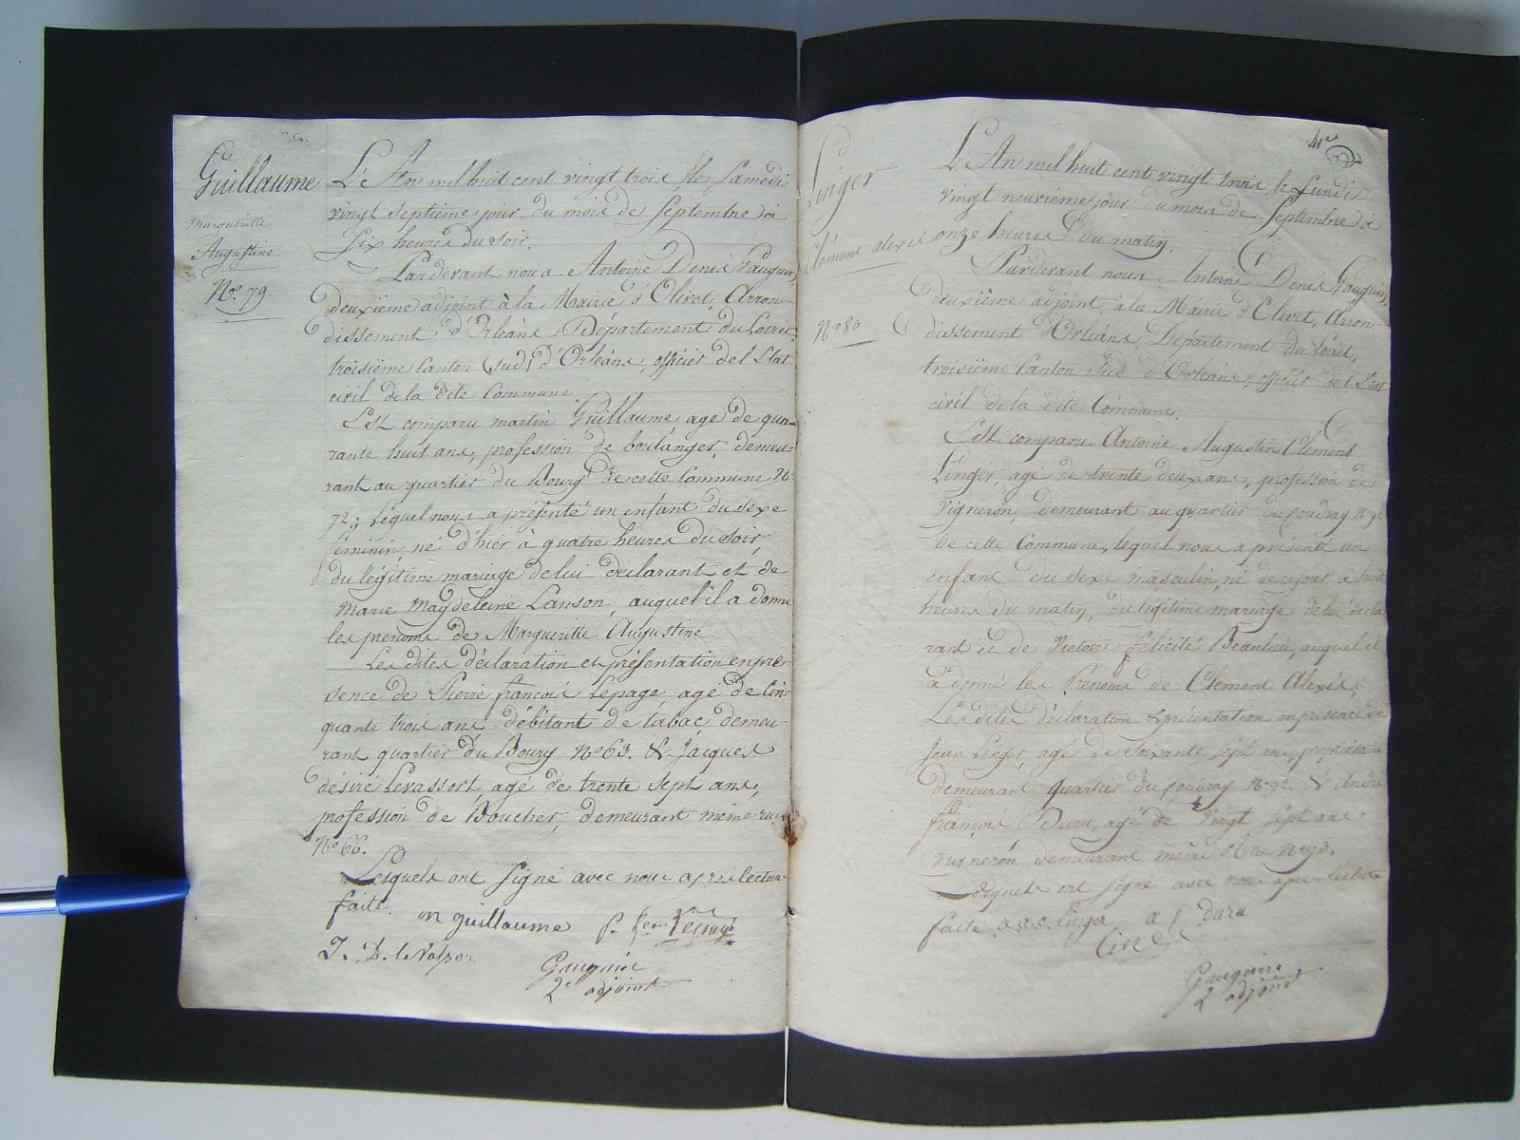 Guillaume
Margueritte
Augustine
N.° 79
L'An mil huit cent vingt trois le Samedi
vingt septieme jour du mois de Septembre à
Six heures du soir.
Pardevant nous Antoine Denis Gauguin,
deuxième adjoint à la Mairie d'Olivet, Arron-
dissement d'Orléans, Département du Loiret,
troisième Canton (sud) d'Orléans, officier de l'Etat
civil de la dite Commune.
Est comparu martin Guillaume agé de qua-
rante huit ans, profession de boulanger, demeu-
rant au quartier du Bourg de cette Commune N.°
72; lequel nous a présenté un enfant du sexe
féminin, né d'hier à quatre heures du soir,
du légitime mariage de lui déclarant et de
Marie Magdeleine Lanson, auquel il a donné
les prénoms de Margueritte Augustine
Les dites déclaration et présentation en pré-
sence de Pierre françois Lepage, agé de Cin-
quante trois ans, débitant de tabac, demeu-
rant quartier du Bourg N.° 63. & Jacques
désiré Levassort, agé de trente Sept ans,
profession de Boucher, demeurant même rue
N.° 66.
Lesquels ont signé avec nous après lecture
faite. m guillaume
J. D. le Vassor
Gauguin
2e adjoint
41e
Linger
Clément alexis
N.° 80
L'An mil huit cent vingt trois le Lundi
vingt neuvieme jour du mois de Septembre à
onze heures du matin.
Pardevant nous Antoine Denis Gauguin,
deuxième adjoint, à la Mairie d'Olivet, Arron-
dissement d'Orléans, Département du Loiret,
troisième Canton Sud d'Orléans, officier de l'Etat
civil de la dite Commune.
Est comparu Antoine Augustin Clément
Linger, agé de trente deux ans, profession de
Vigneron, demeurant au quartier du Coudray
de cette Commune, lequel nous a présenté un
enfant du sexe masculin, né de ce jour à huit
heures du matin, du légitime mariage de lui décla-
rant et de Victoire félicité Beaulieu, auquel il
a donné les Prénoms de Clément Alexis,
Les dites déclaration & présentation en présence de
Jean Linger, agé de Soixante sept ans,
demeurant quartier du Coudray & André
françois Daru, agé de vingt sept ans,
vigneron demeurant même
Lesquels ont signé avec nous après lecture
faite. a.a.c. Linger a f Daru
Gauguin
2 adjoint